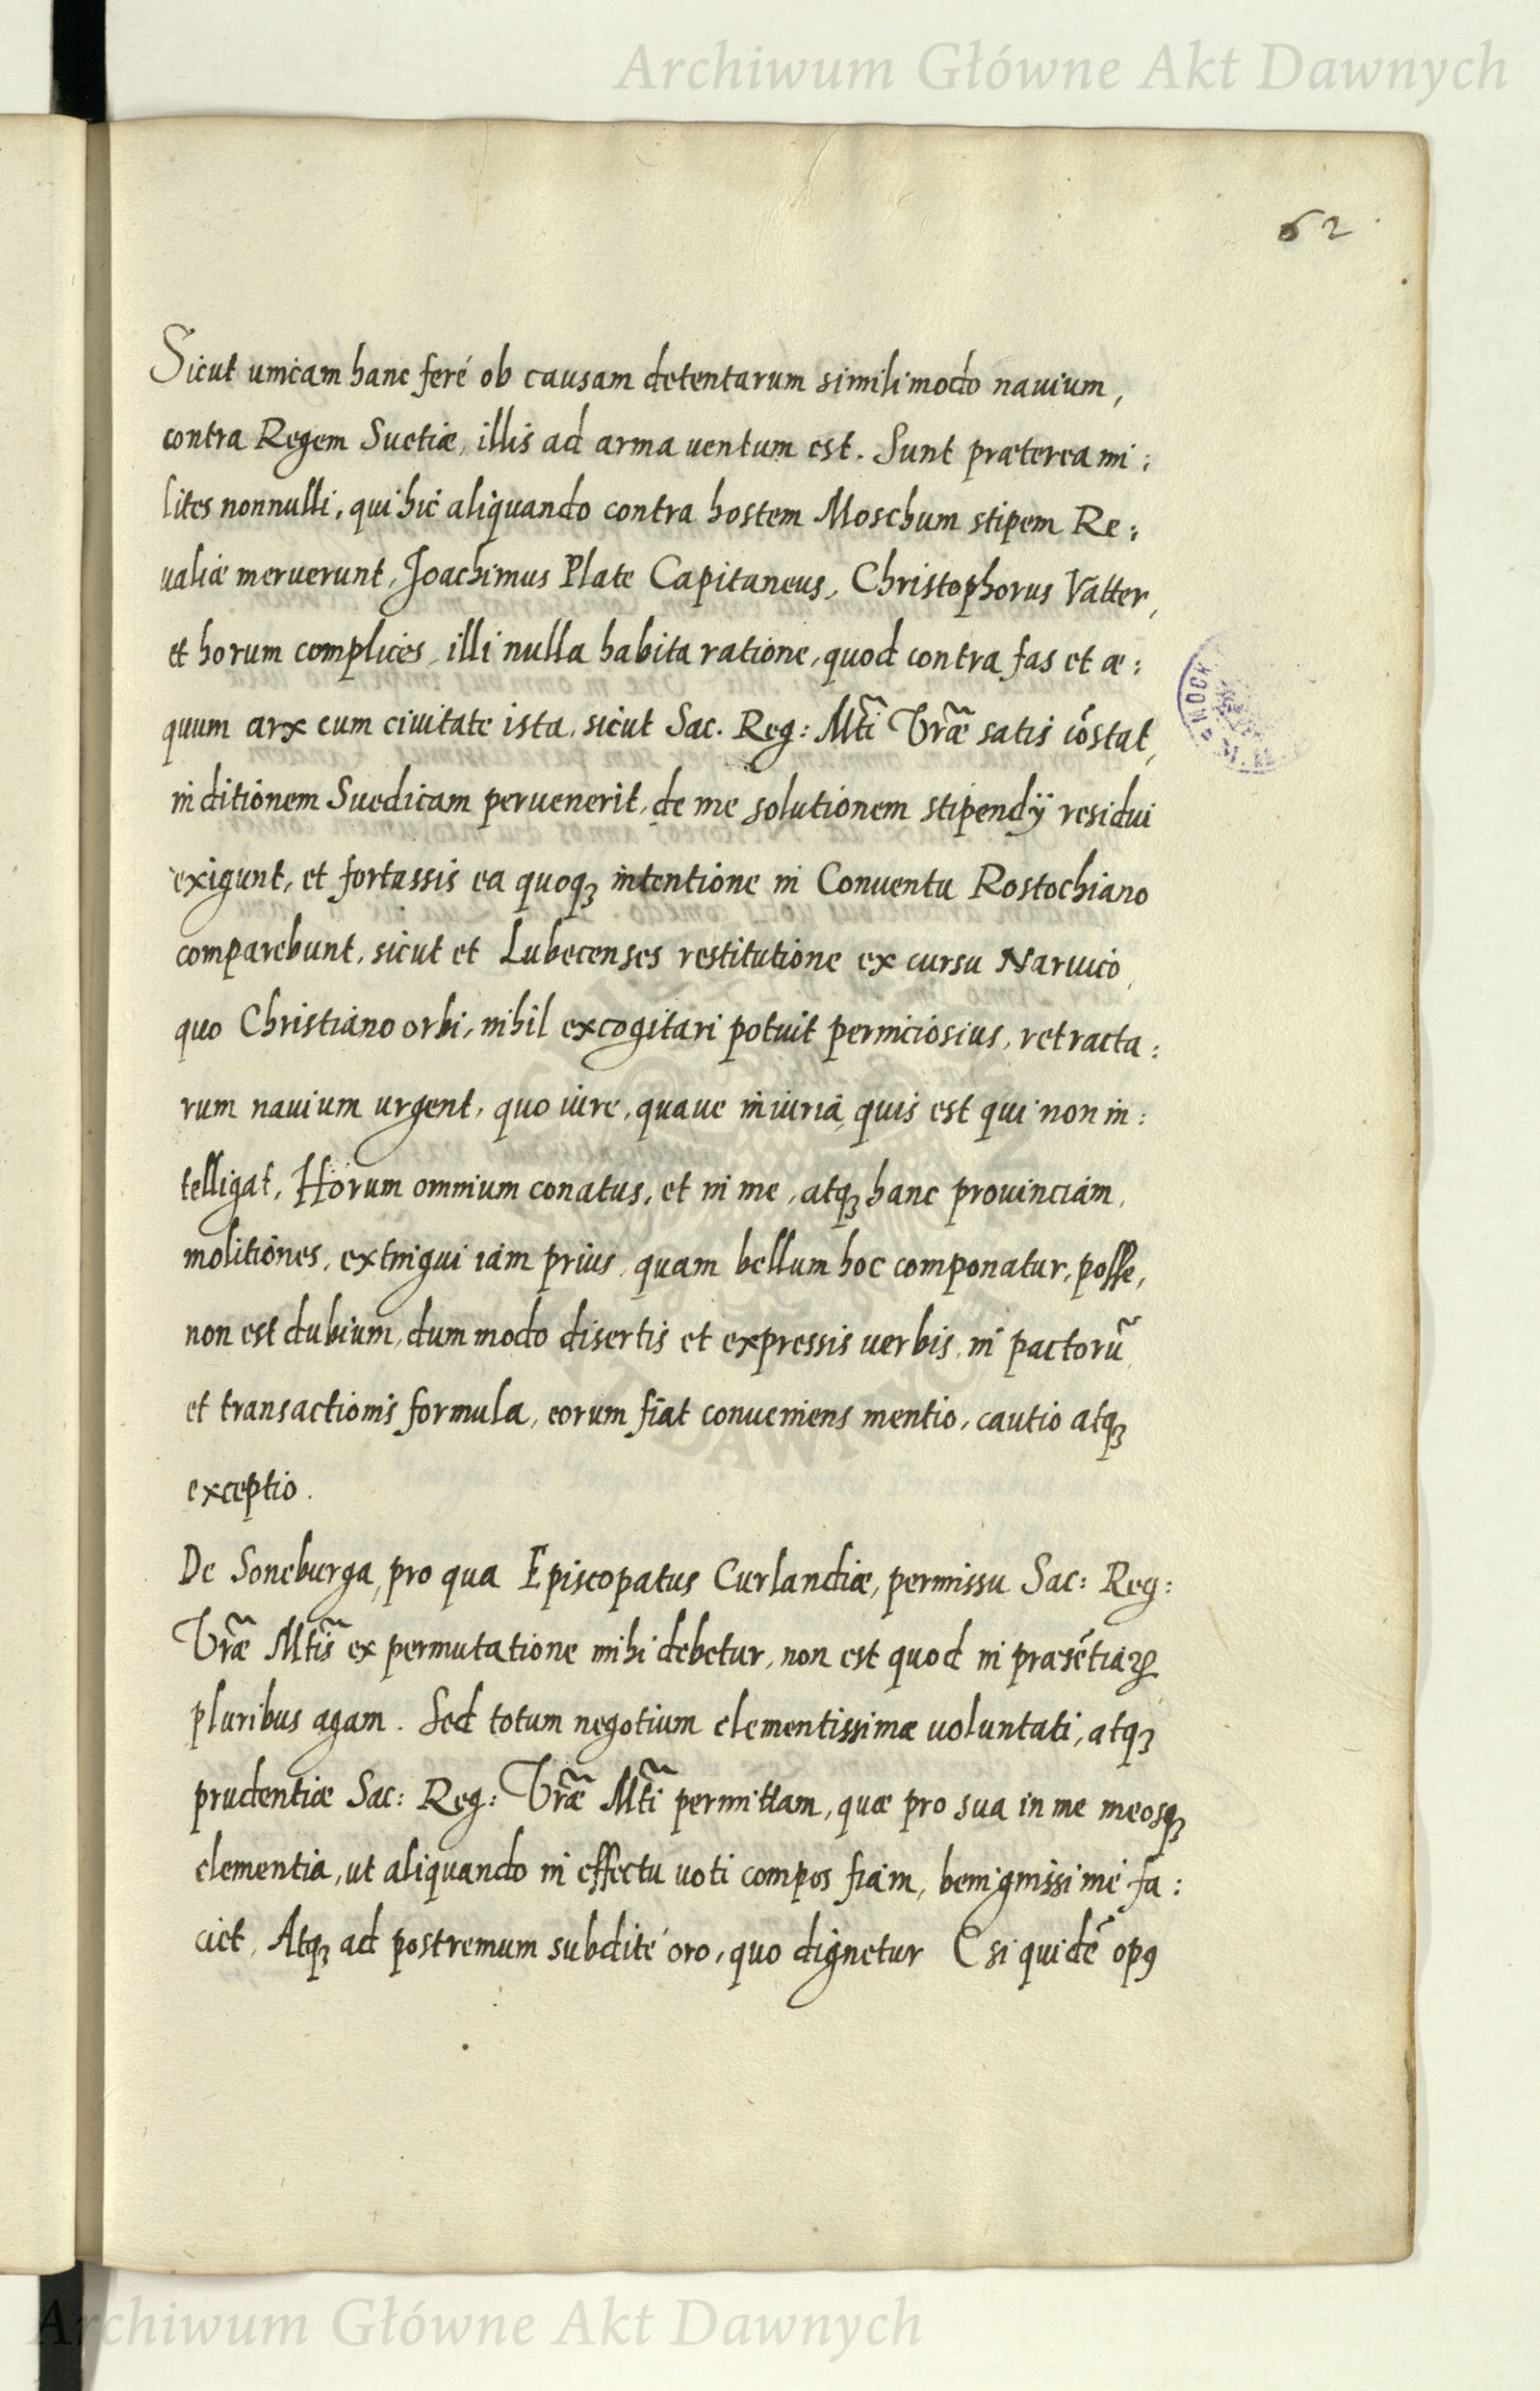 Archiwum Główne Akt Dawnych
62
Sicut unicam hanc feré ob causam detentarum simili modo nauium,
contra Regem Suetiæ, illis ad arma uentum est. Sunt præterea mi:
lites nonnulli, qui hic aliquando contra hostem Moschum stipem Re:
ualiæ meruerunt, Joachimus Plate Capitaneus, Christophorus Vatter,
et horum complices, illi nulla habita ratione, quod contra fas et æ:
quum arx cum ciuitate ista, sicut Sac. Reg: Mt̃i Vr̃æ satis cõstat,
in ditionem Suedicam peruenerit, de me solutionem stipendÿ residui
exigunt, et fortassis ea quoqꝫ intentione in Conuentu Rostochiano
comparebunt, sicut et Lubecenses restitutione ex cursu Naruico,
quo Christiano orbi, nihil excogitari potuit perniciosius, retracta:
rum nauium urgent, quo iure, quaue iniuriá, quis est qui non in:
telligat, Horum omnium conatus, et in me, atqꝫ hanc prouinciam,
molitiones, extingui iam prius, quam bellum hoc componatur, posse,
non est dubium, dum modo disertis et expressis uerbis in pactorũ
et transactionis formula, eorum fiat conueniens mentio, cautio atqꝫ
exceptio.
De Soneburga, pro qua Episcopatus Curlandiæ, permissu Sac: Reg:
Vr̃æ Mt̃is ex permutatione mihi debetur, non est quod in præsẽtiaꝝ
pluribus agam. Sed totum negotium clementissimæ uoluntati, atqꝫ
prudentiæ Sac: Reg: Vr̃æ Mt̃i permittam, quæ pro sua in me meosqꝫ
clementia, ut aliquando in effectu uoti compos fiam, benignissimé fa:
ciet, Atqꝫ ad postremum subdité oro, quo dignetur (si quidẽ opꝯ
Archiwum Główne Akt Dawnych